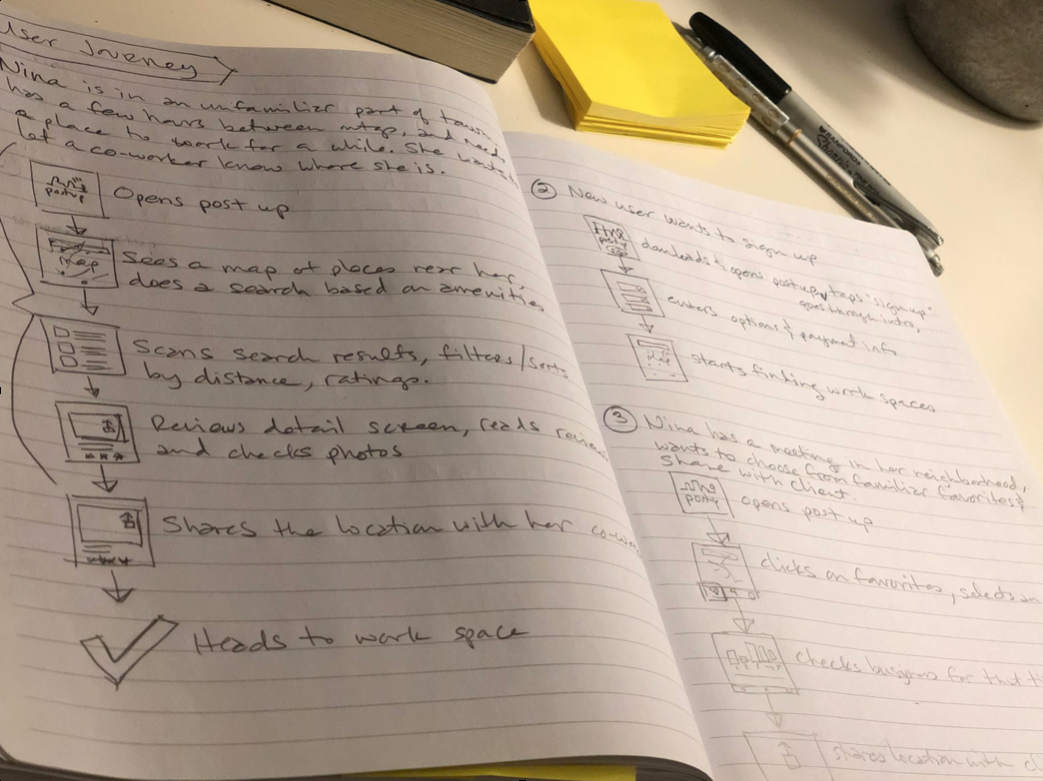 User Journey
Nina is in an unfamiliar part of town
has a few hours between mtgs, and needs
a place to work for a while. She wants to
let a co-worker know where she is.
postup
Opens post up
Map
Sees a map of places near her,
does a search based on amenities
Scans search results, filters/sorts
by distance, ratings.
Reviews detail screen, reads reviews
and checks photos
Shares the location with her
Heads to work space
② New user wants to sign up
downloads & opens postup, taps "sign up"
goes through intro,
enters options & payment info
starts finding work spaces
③ Nina has a meeting in her neighborhood,
wants to choose from familiar favorites &
share with client.
postup
opens post up
clicks on favorites, selects
checks busyness for that
shares location with
Sharpie